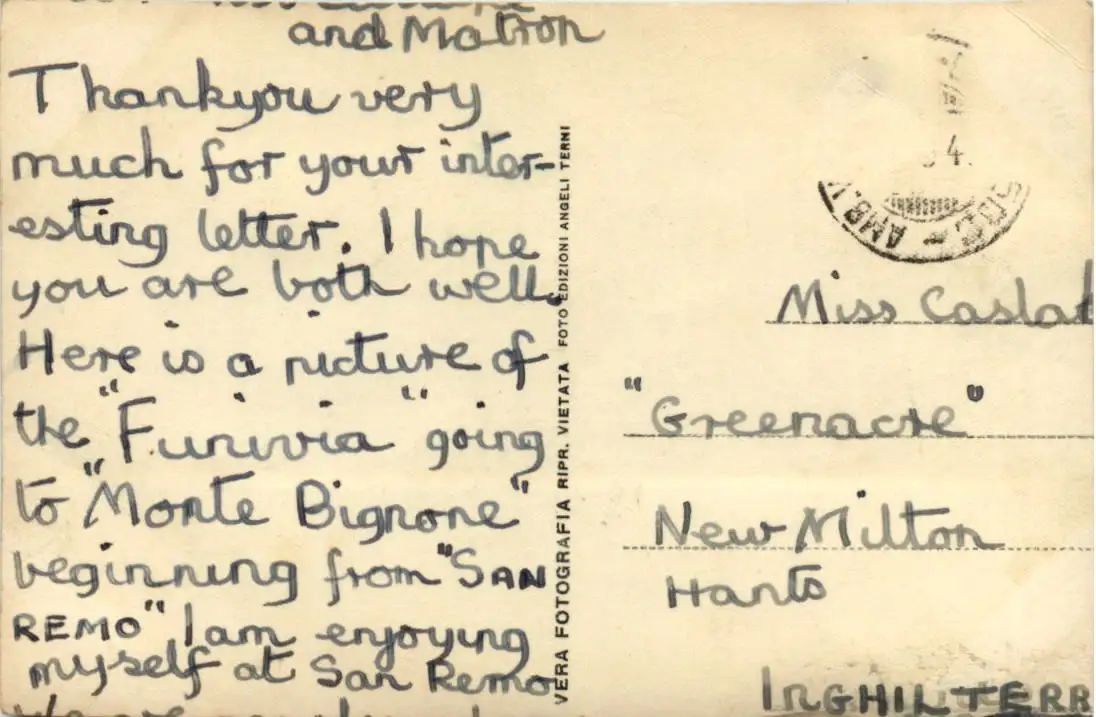 and Matron
Thankyou very
much for your inter-
esting letter. I hope
you are both well.
Here is a picture of
the "Funivia" going
to "Monte Bignone"
beginning from "SAN
REMO" I am enjoying
myself at San Remo
We are
VERA FOTOGRAFIA RIPR. VIETATA FOTO EDIZIONI ANGELI TERNI
4.
AMB.
Miss Caslak
"Greenacre"
New Milton
Hants
INGHILTERR